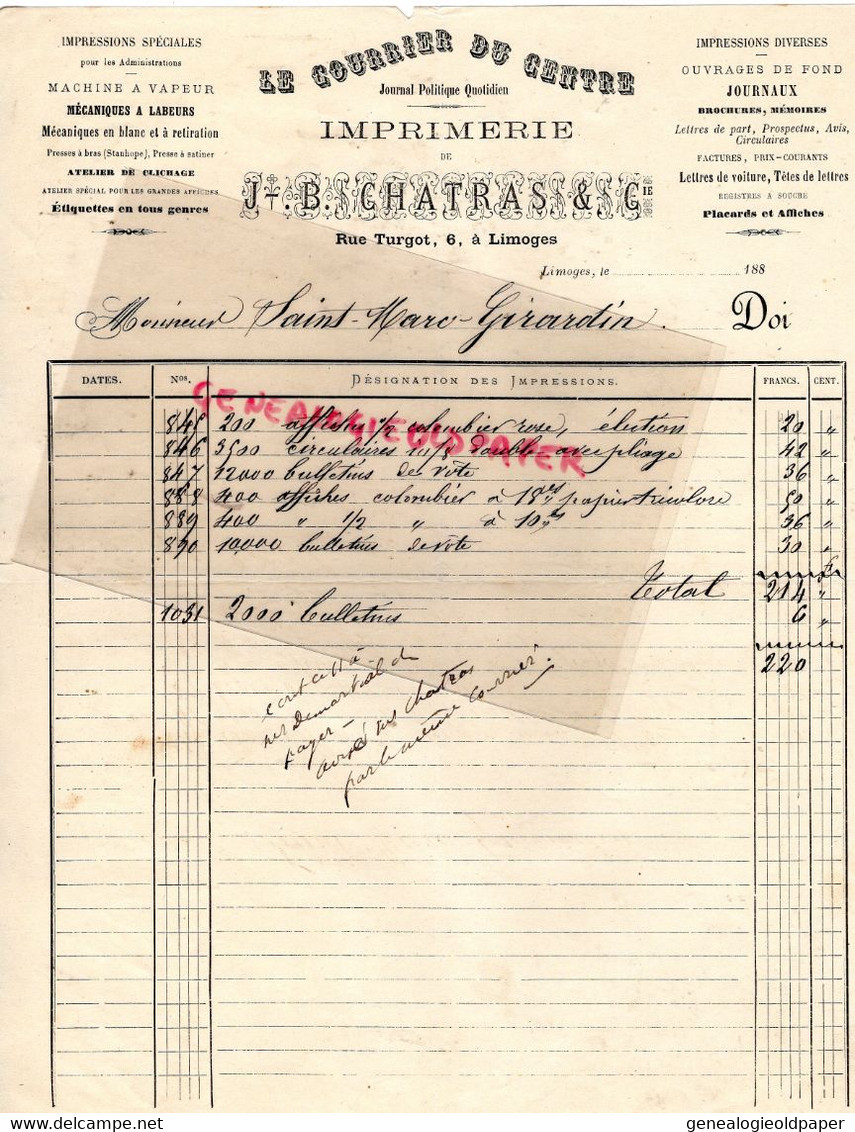 IMPRESSIONS SPÉCIALES
pour les Administrations
MACHINE A VAPEUR
MÉCANIQUES A LABEURS
Mécaniques en blanc et à retiration
Presses à bras (Stanhope), Presse à satiner
ATELIER DE CLICHAGE
ATELIER SPÉCIAL POUR LES GRANDES AFFICHES
Étiquettes en tous genres
LE COURRIER DU CENTRE
Journal Politique Quotidien
IMPRIMERIE
DE
J-.B. CHATRAS & CIE
Rue Turgot, 6, à Limoges
IMPRESSIONS DIVERSES
OUVRAGES DE FOND
JOURNAUX
BROCHURES, MÉMOIRES
Lettres de part, Prospectus, Avis,
Circulaires
FACTURES, PRIX-COURANTS
Lettres de voiture, Têtes de lettres
REGISTRES A SOUCHE
Placards et Affiches
Limoges, le 188
Monsieur Saint-Marc-Girardin. Doi
DATES. Nos. DÉSIGNATION DES IMPRESSIONS. FRANCS. CENT.
845 200 affiches 1/2 colombier rose, élection 20 "
846 3500 circulaires in/8 double avec pliage 42 "
847 12000 bulletins de vote 36 "
888 400 affiches colombier à 18 es papier tricolore 50 "
889 400 " 1/2 " à 10 es 36 "
890 10,000 bulletins de vote 30 "
Total 214 "
1031 2000 bulletins 6 "
220
payer -
Chatras
par le même courrier.
GENEALOGIEOLDPAPER
genealogieoldpaper